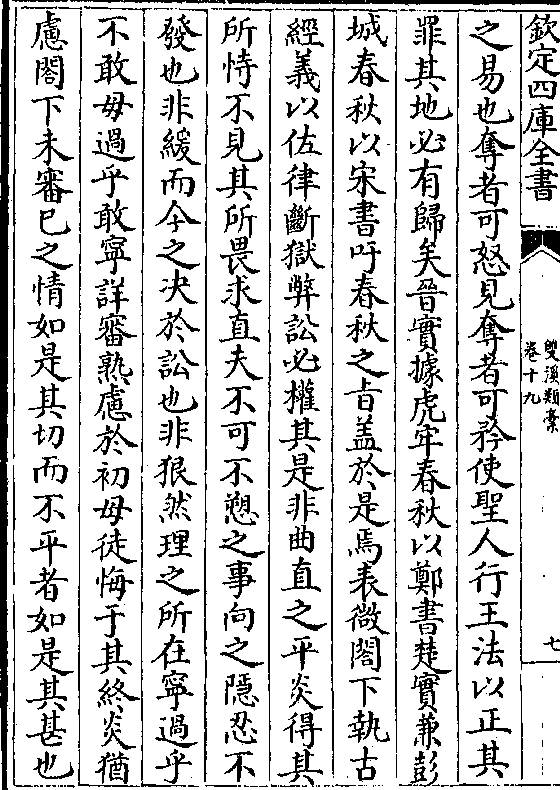 欽定四庫全書
雙溪類稾
卷十九
七
之易也奪者可怒見奪者可矜使聖人行王法以正其
罪其地必有歸矣晉實據虎牢春秋以鄭書楚實兼彭
城春秋以宋書吁春秋之旨盖於是焉表微閣下執古
經義以佐律斷獄弊訟必權其是非曲直之平炎得其
所恃不見其所畏求直夫不可不愬之事向之隠忍不
發也非緩而今之决於訟也非狠然理之所在寧過乎
不敢毋過乎敢寧詳審熟慮於初毋徒悔于其終炎猶
慮閣下未審已之情如是其切而不平者如是其甚也